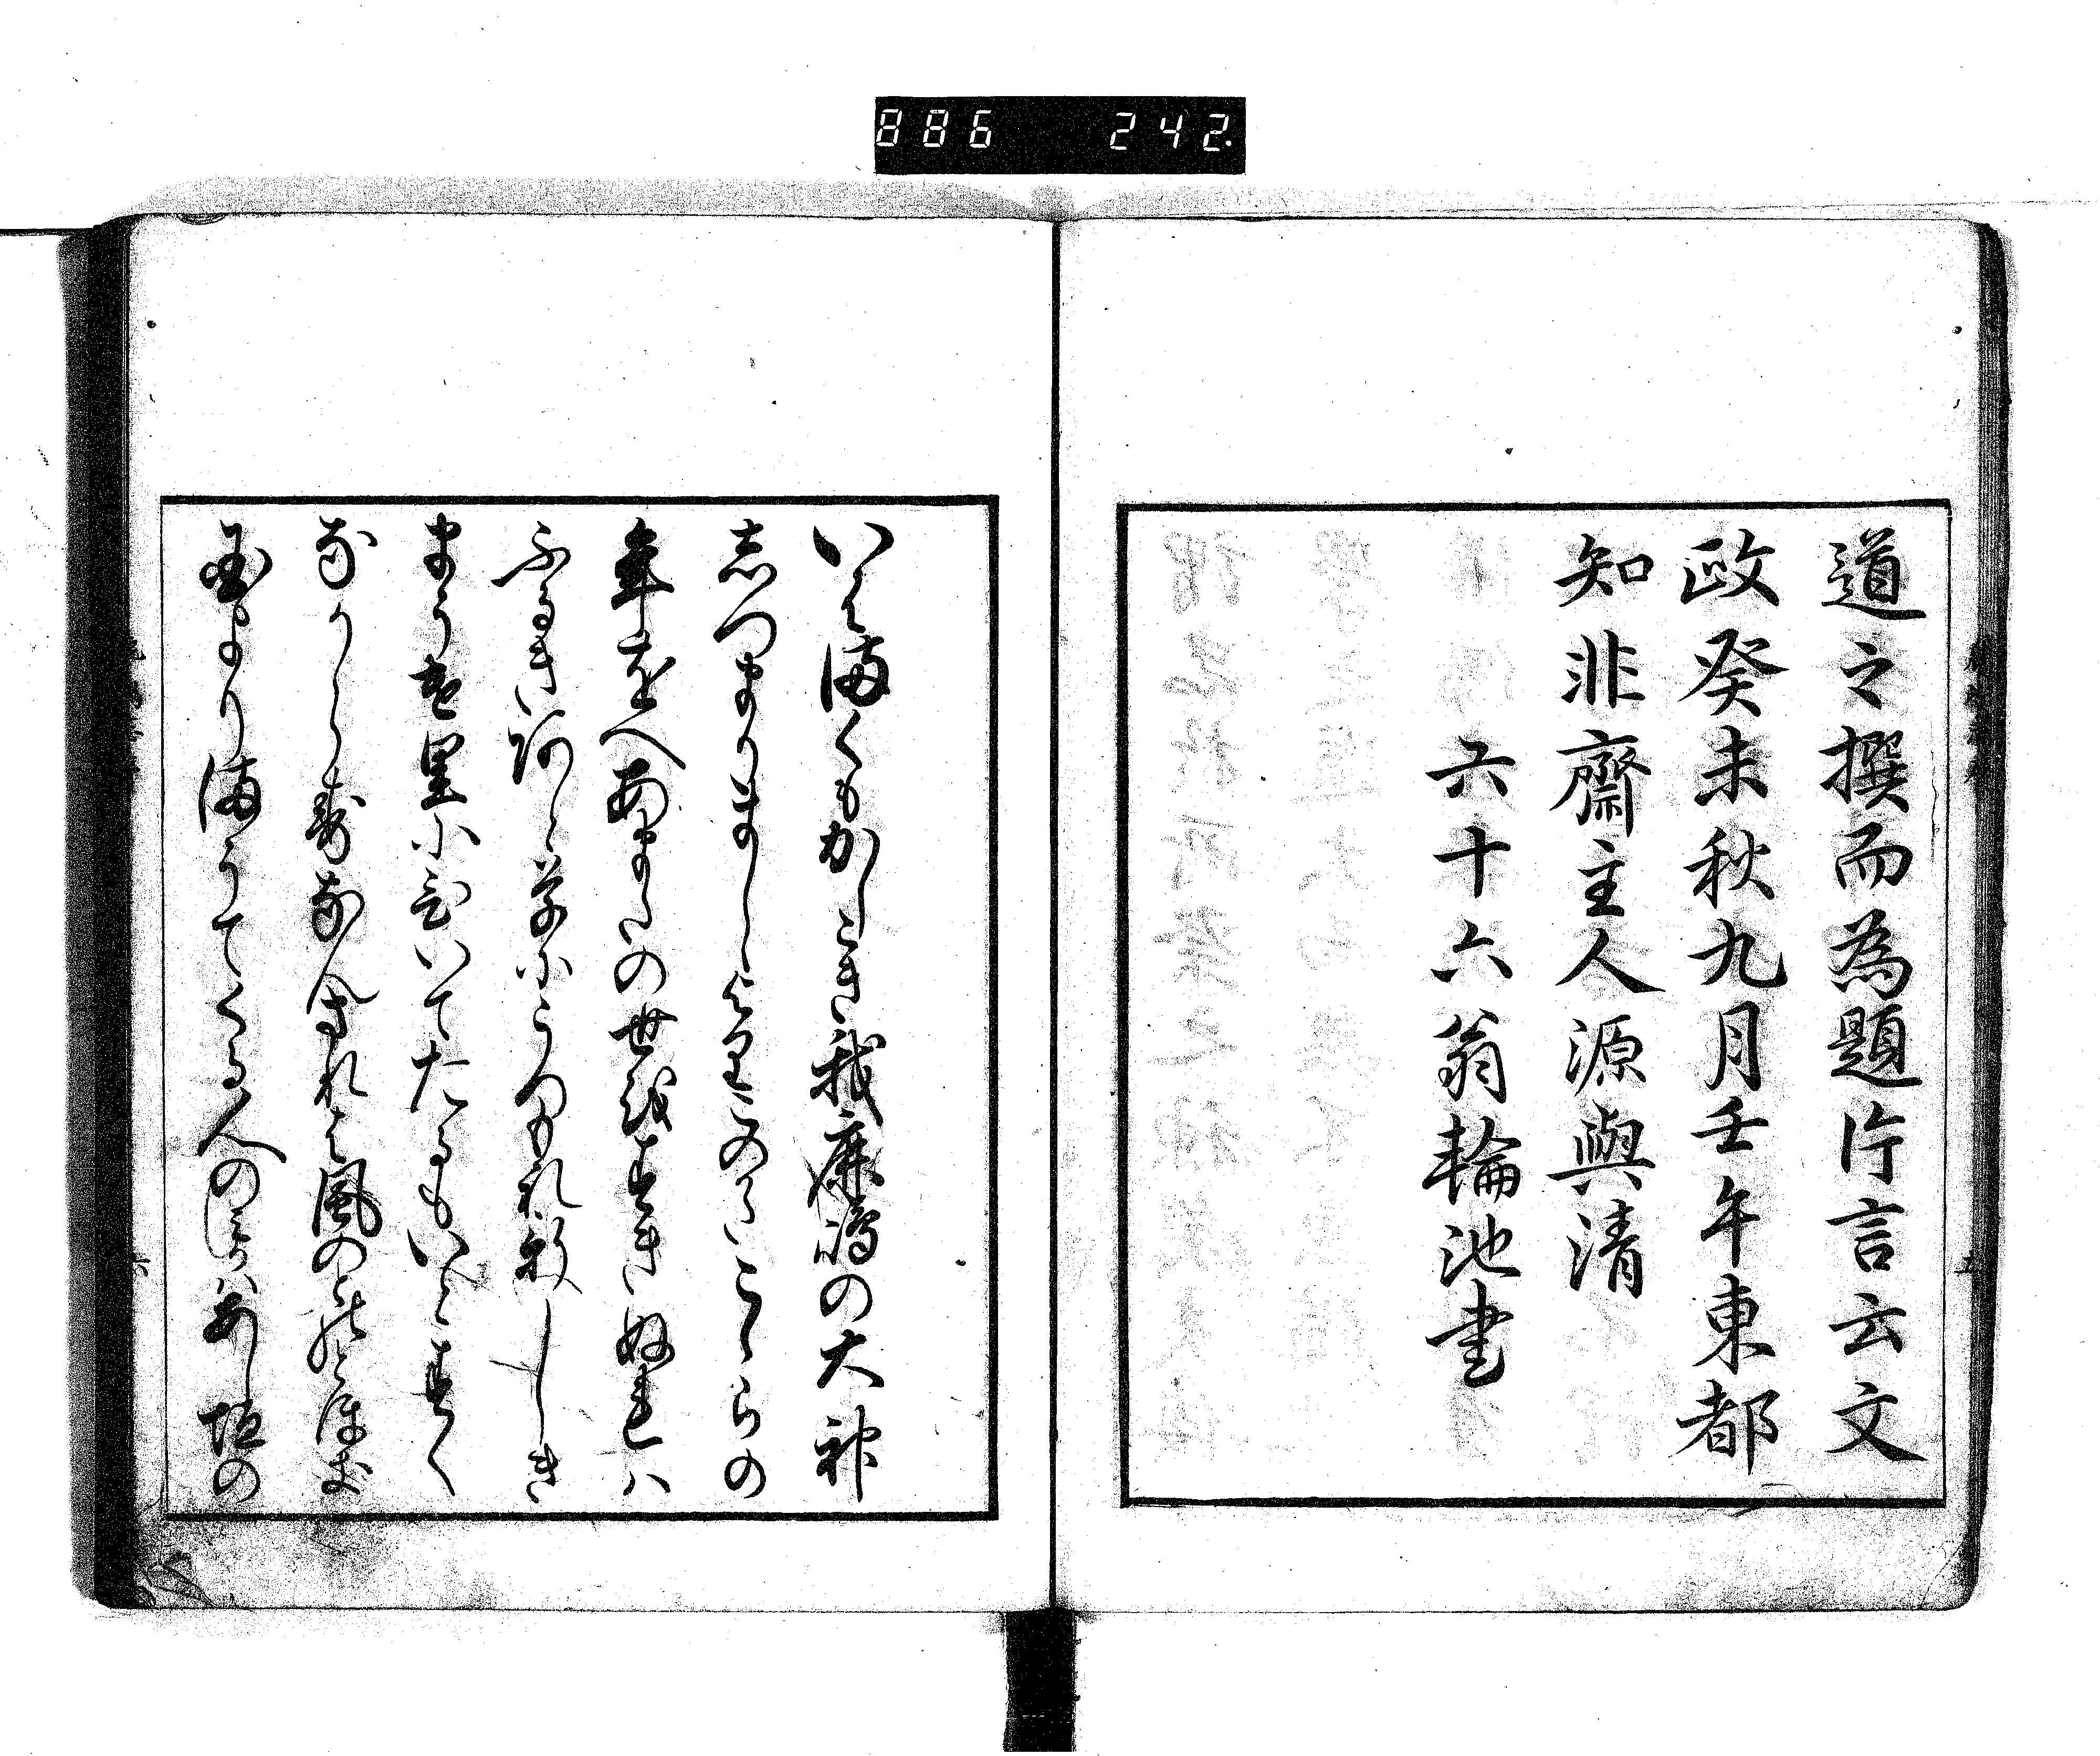 886 242.
道之撰而為題片言云文
政癸未秋九月壬午東都
知非齋主人源與清
六十六翁輪池書
いはまくもかしこき我鹿嶋の大神
志つまりましゝよりこのかたこゝらの
年をへあまたの世をすきぬれハ
ふるきあとゝ草にうつもれ
まうた里にといてたるもいとすく
なからすなんされは風のとのとほ
国よりまうてくる人のほかハあし垣の